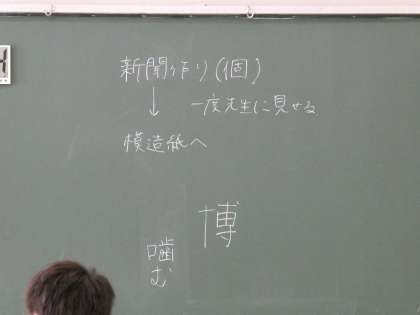 新聞作り(個)
↓ 一度先生に見せる
模造紙へ
博
噛む